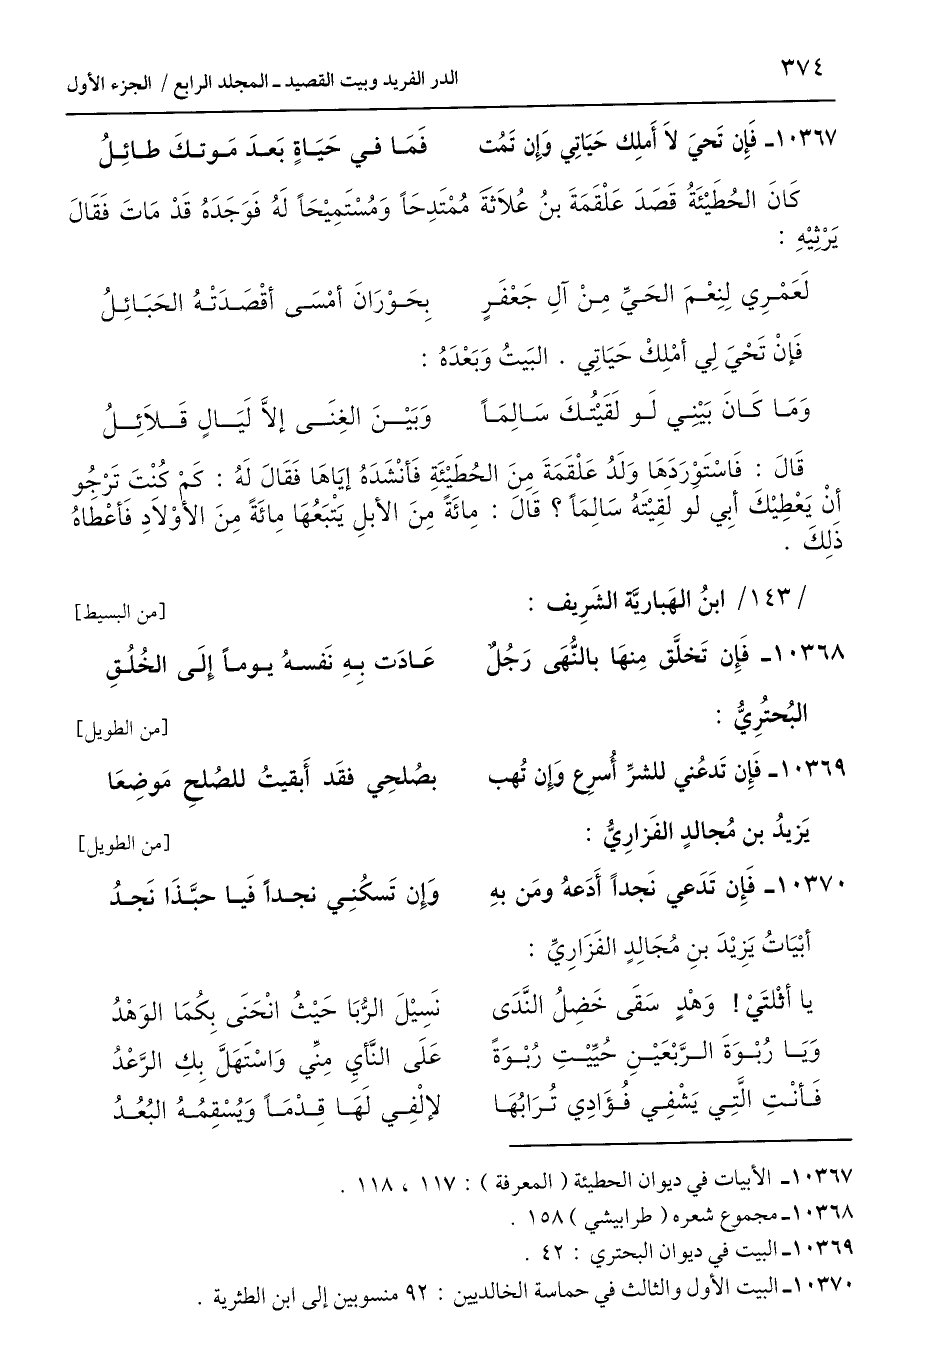 ٣٧٤
الدر الفريد وبيت القصيد ـ المجلد الرابع / الجزء الأول
١٠٣٦٧ـ فَإِن تَحيَ لاَ أَملِك حَيَاتِي وَإِن تَمُت فَمَا في حَيَاةٍ بَعدَ مَوتكَ طائِلُ
كَانَ الحُطَيْئَةُ قَصَدَ عَلْقَمَةَ بنُ عُلاَثَةَ مُمْتَدِحَاً وَمُسْتَمِيْحَاً لَهُ فَوَجَدَهُ قَدْ مَاتَ فَقَالَ
يَرْثِيْهِ :
لَعَمْرِي لِنِعْمَ الحَيِّ مِنْ آلِ جَعْفَرٍ بِحَوْرَانَ أمْسَى أقْصَدَتْهُ الحَبَائِلُ
فَإنْ تَحْيَ لِي أمْلِكْ حَيَاتِي . البَيتُ وَبَعْدَهُ :
وَمَا كَانَ بَيْنِي لَو لَقَيْتُكَ سَالِمَاً وَبَيْنَ الغِنَى إلاَّ لَيَالٍ قَلاَئِلُ
قَالَ : فَاسْتَوْرَدَهَا وَلَدُ عَلْقَمَةَ مِنَ الحُطَيْئَةِ فَأنْشَدَهُ إيَاهَا فَقَالَ لَهُ : كَمْ كُنْتَ تَرْجُو
أنْ يَعْطِيْكَ أبِي لَو لَقِيْتَهُ سَالِمَاً ؟ قَالَ : مِائَةً مِنَ الأبلِ يَتْبَعُهَا مِائَةً مِنَ الأوْلاَدِ فَأعْطَاهُ
ذَلِكَ .
/١٤٣/ ابنُ الهَباريَّة الشَرِيف : [من البسيط]
١٠٣٦٨ـ فَإِن تَخلَّق مِنهَا بالنُّهَى رَجُلٌ عَادَت بِهِ نَفسهُ يوماً إِلَى الخُلُقِ
البُحتُرِيُّ : [من الطويل]
١٠٣٦٩ـ فَإِن تَدعُني للشرِّ أُسرِع وَإِن تُهب بصُلحِي فقَد أَبقيتُ للصُلحِ مَوضِعَا
يَزيدُ بن مُجالدٍ الفَزارِيُّ : [من الطويل]
١٠٣٧٠ـ فَإِن تَدَعي نَجداً أَدَعهُ ومَن بهِ وَإِن تَسكُنِي نجداً فَيا حبَّذَا نَجدُ
أبْيَاتُ يَزِيْدَ بنِ مُجَالِدٍ الفَزَارِيِّ :
يا أثْلتَيْ ! وَهْدٍ سَقَى خَضِلُ النَّدَى نَسِيْلَ الرُّبَا حَيْثُ انْحَنَى بِكُمَا الوَهْدُ
وَيَا رُبْوَةَ الرَّبْعَيْنِ حُيِّيْتِ رُبْوَةً عَلَى النَّأيِ مِنِّي وَاسْتَهَلَّ بِكِ الرَّعْدُ
فَأنْتِ الَّتِي يَشْفِي فُؤَادِي تُرَابُهَا لإلْفِي لَهَا قِدْمَاً وَيُسْقِمُهُ البُعْدُ
١٠٣٦٧ـ الأبيات في ديوان الحطيئة ( المعرفة ) : ١١٧ ، ١١٨ .
١٠٣٦٨ـ مجموع شعره ( طرابيشي ) ١٥٨ .
١٠٣٦٩ـ البيت في ديوان البحتري : ٤٢ .
١٠٣٧٠ـ البيت الأول والثالث في حماسة الخالديين : ٩٢ منسوبين إلى ابن الطثرية .